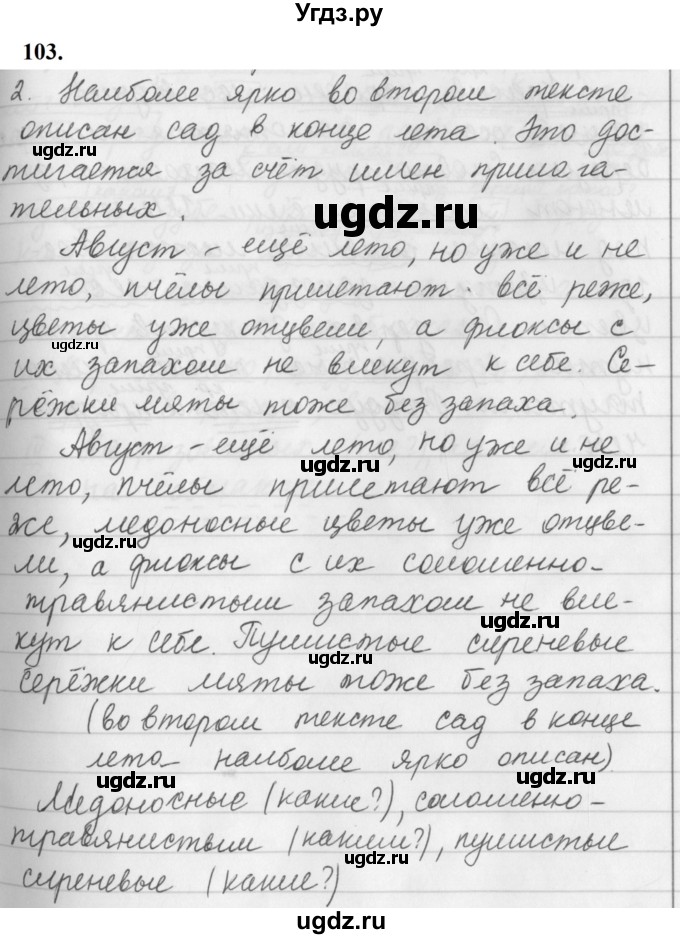 Угдз.ру
103.
2. Наиболее ярко во втором тексте
описан сад в конце лета. Это дос-
ugdz.ru ugdz.ru
тигается за счёт имен прилага-
тельных.
ugdz.ru
Август - ещё лето, но уже и не
лето, пчёлы прилетают всё реже,
цветы уже отцвели, а флоксы с
ugdz.ru ugdz.ru
их запахом не влекут к себе. Се-
рёжки мяты тоже без запаха.
Август - ещё лето, но уже и не
ugdz.ru
лето, пчёлы прилетают всё ре-
же, медоносные цветы уже отцве-
ugdz.ru
ли, а флоксы с их соломенно-
ugdz.ru
травянистым запахом не вле-
кут к себе. Пушистые сиреневые
ugdz.ru
серёжки мяты тоже без запаха.
(во втором тексте сад в конце
лета наиболее ярко описан)
ugdz.ru
Медоносные (какие?), соломенно-
травянистым (каким?), пушистые
ugdz.ru
сиреневые (какие?)
ugdz.ru